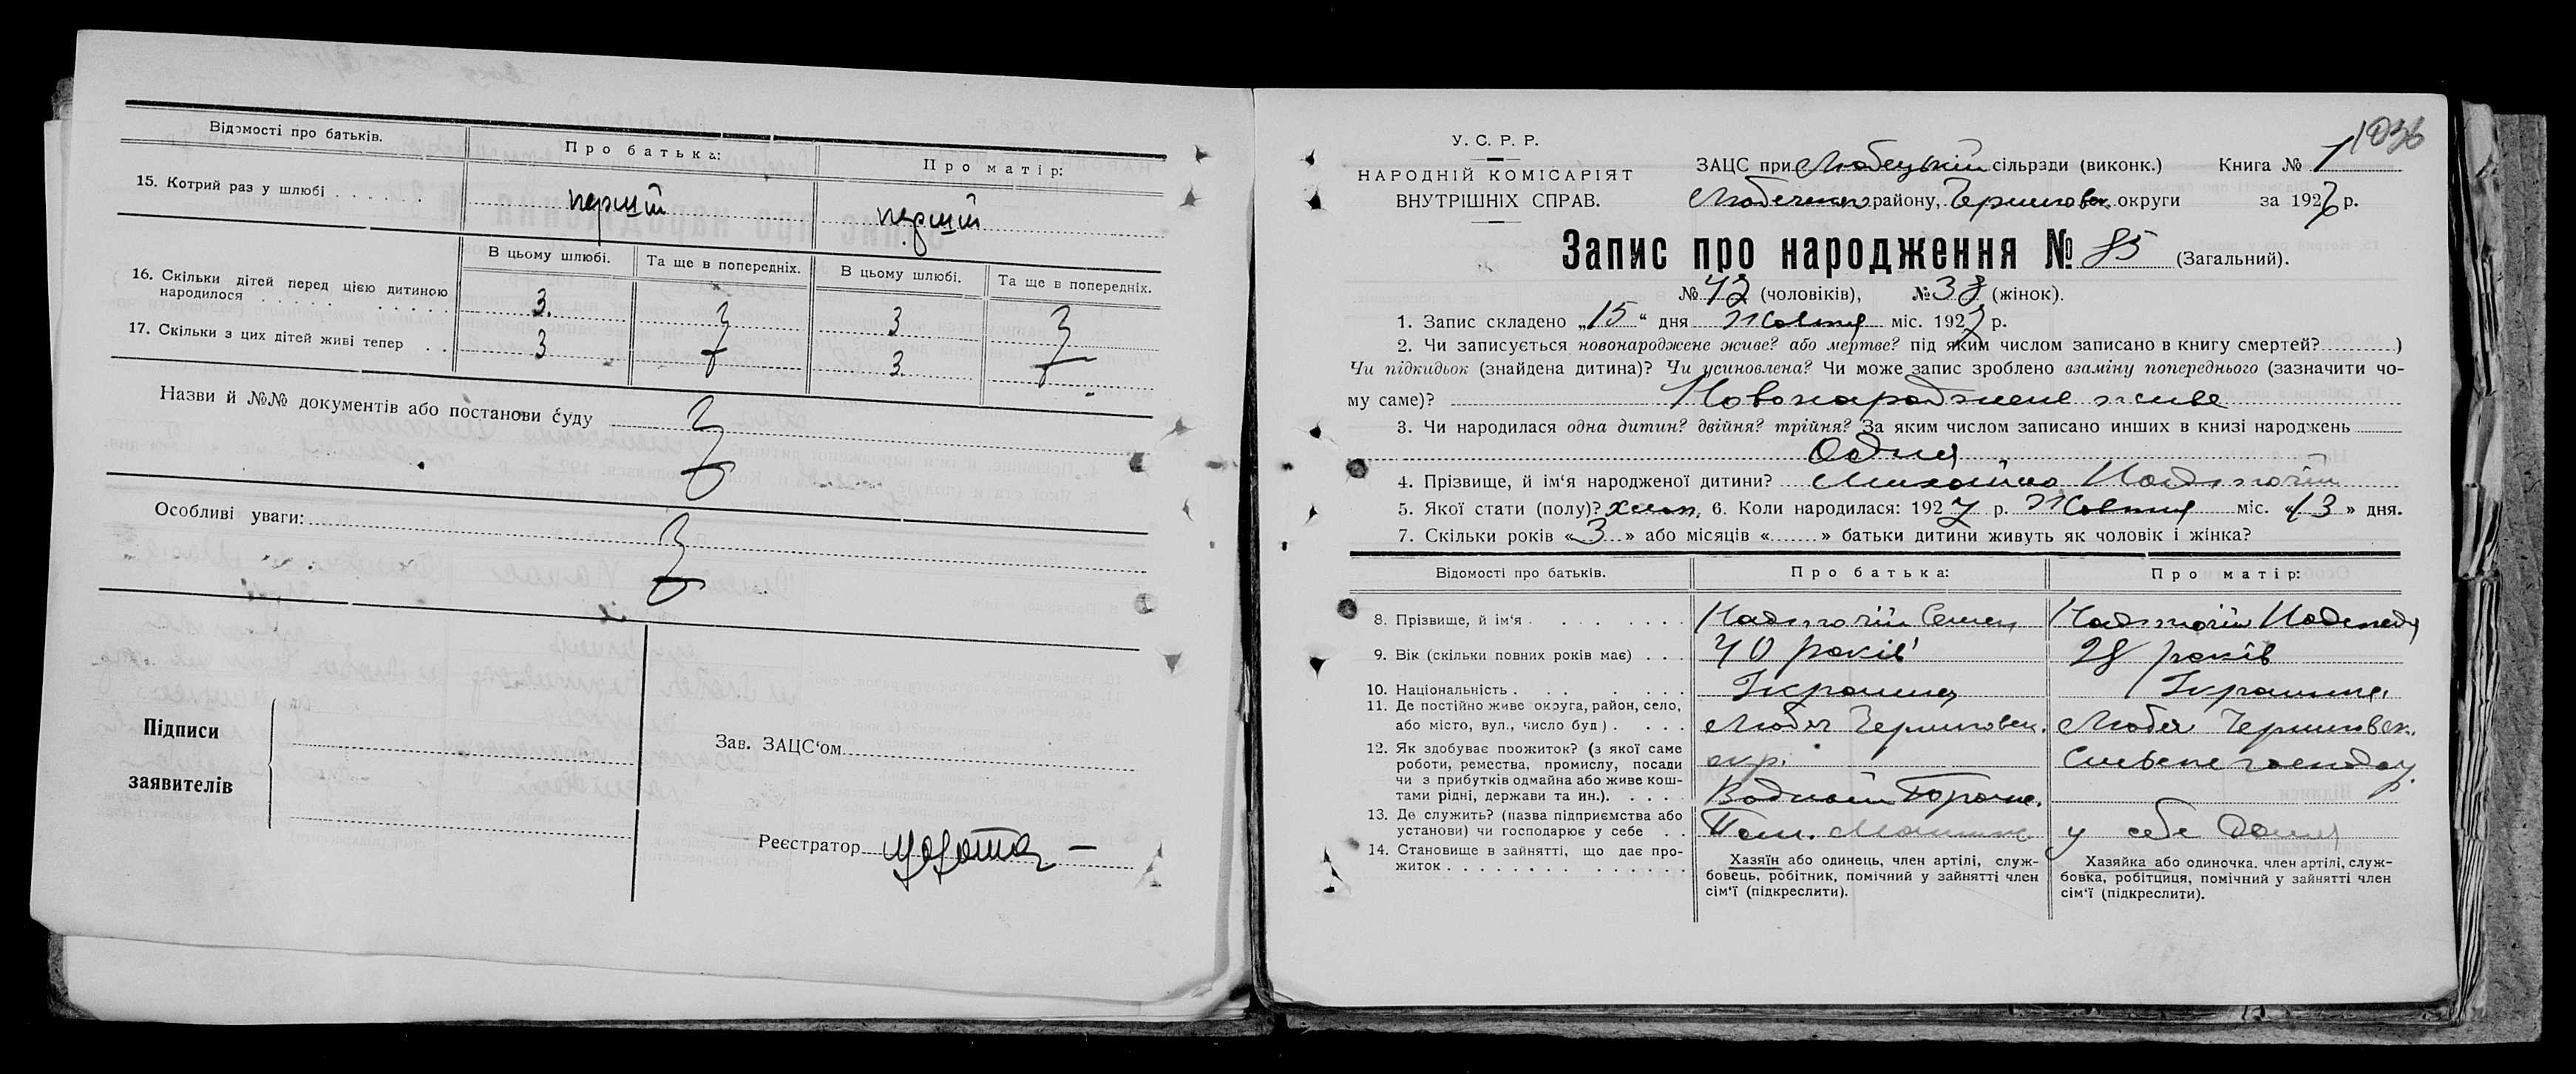 Відомості про батьків.
Про батька:
Про матір:
15. Котрий раз у шлюбі . . . . . .
перший
перший
В цьому шлюбі.
Та ще в попередніх.
В цьому шлюбі.
Та ще в попередніх.
16. Скільки дітей перед цією дитиною
народилося . . . . .
3.
3
17. Скільки з цих дітей живі тепер . .
3
3.
Назви й №№ документів або постанови суду
Особливі уваги:
Підписи
заявителів
Зав. ЗАЦС'ом
Реєстратор
1036
У. С. Р. Р.
НАРОДНІЙ КОМІСАРІЯТ
ВНУТРІШНІХ СПРАВ.
ЗАЦС при Любецькій сільради (виконк.) Книга № 1
району, округи за 1927 р.
Запис про народження № 85 (Загальний).
№ 42 (чоловіків), № (жінок).
1. Запис складено „15“ дня Жовтня міс. 1927 р.
2. Чи записується новонароджене живе? або мертве? під яким числом записано в книгу смертей? )
Чи підкидьок (знайдена дитина)? Чи усиновлена? Чи може запис зроблено взаміну попереднього (зазначити чо-
му саме)? Новонароджене живе
3. Чи народилася одна дитин? двійня? трійня? За яким числом записано инших в книзі народжень
Одна
4. Прізвище, й ім'я народженої дитини?
5. Якої стати (полу)? 6. Коли народилася: 1927 р. Жовтня міс. «13» дня.
7. Скільки років «3» або місяців « » батьки дитини живуть як чоловік і жінка?
Відомості про батьків.
Про батька:
Про матір:
8. Прізвище, й ім'я . . . . . .
Семен
9. Вік (скільки повних років має) . . .
40 років
28 років
10. Національність . . . . . .
Українец
Українка
11. Де постійно живе округа, район, село,
або місто, вул., число буд) . . . .
Любеч Черниговск.
окр.
Любеч Черниговск.
12. Як здобуває прожиток? (з якої саме
роботи, ремества, промислу, посади
чи з прибутків одмайна або живе кош-
тами рідні, держави та ин.). . . . .
13. Де служить? (назва підприємства або
установи) чи господарює у себе . .
у себе дома
14. Становище в зайнятті, що дає про-
житок . . . . . . . . . . . . . .
Хазяїн або одинець, член артілі, служ-
бовець, робітник, помічний у зайнятті член
сім'ї (підкреслити).
Хазяйка або одиночка, член артілі, служ-
бовка, робітниця, помічний у зайнятті член
сім'ї (підкреслити).